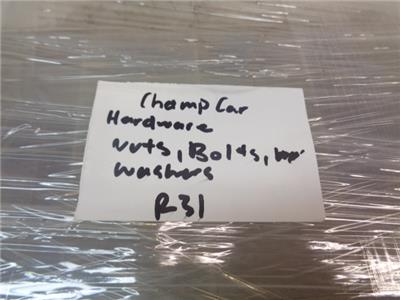 Champ Car
Hardware
Nuts, Bolts,
washers
R31